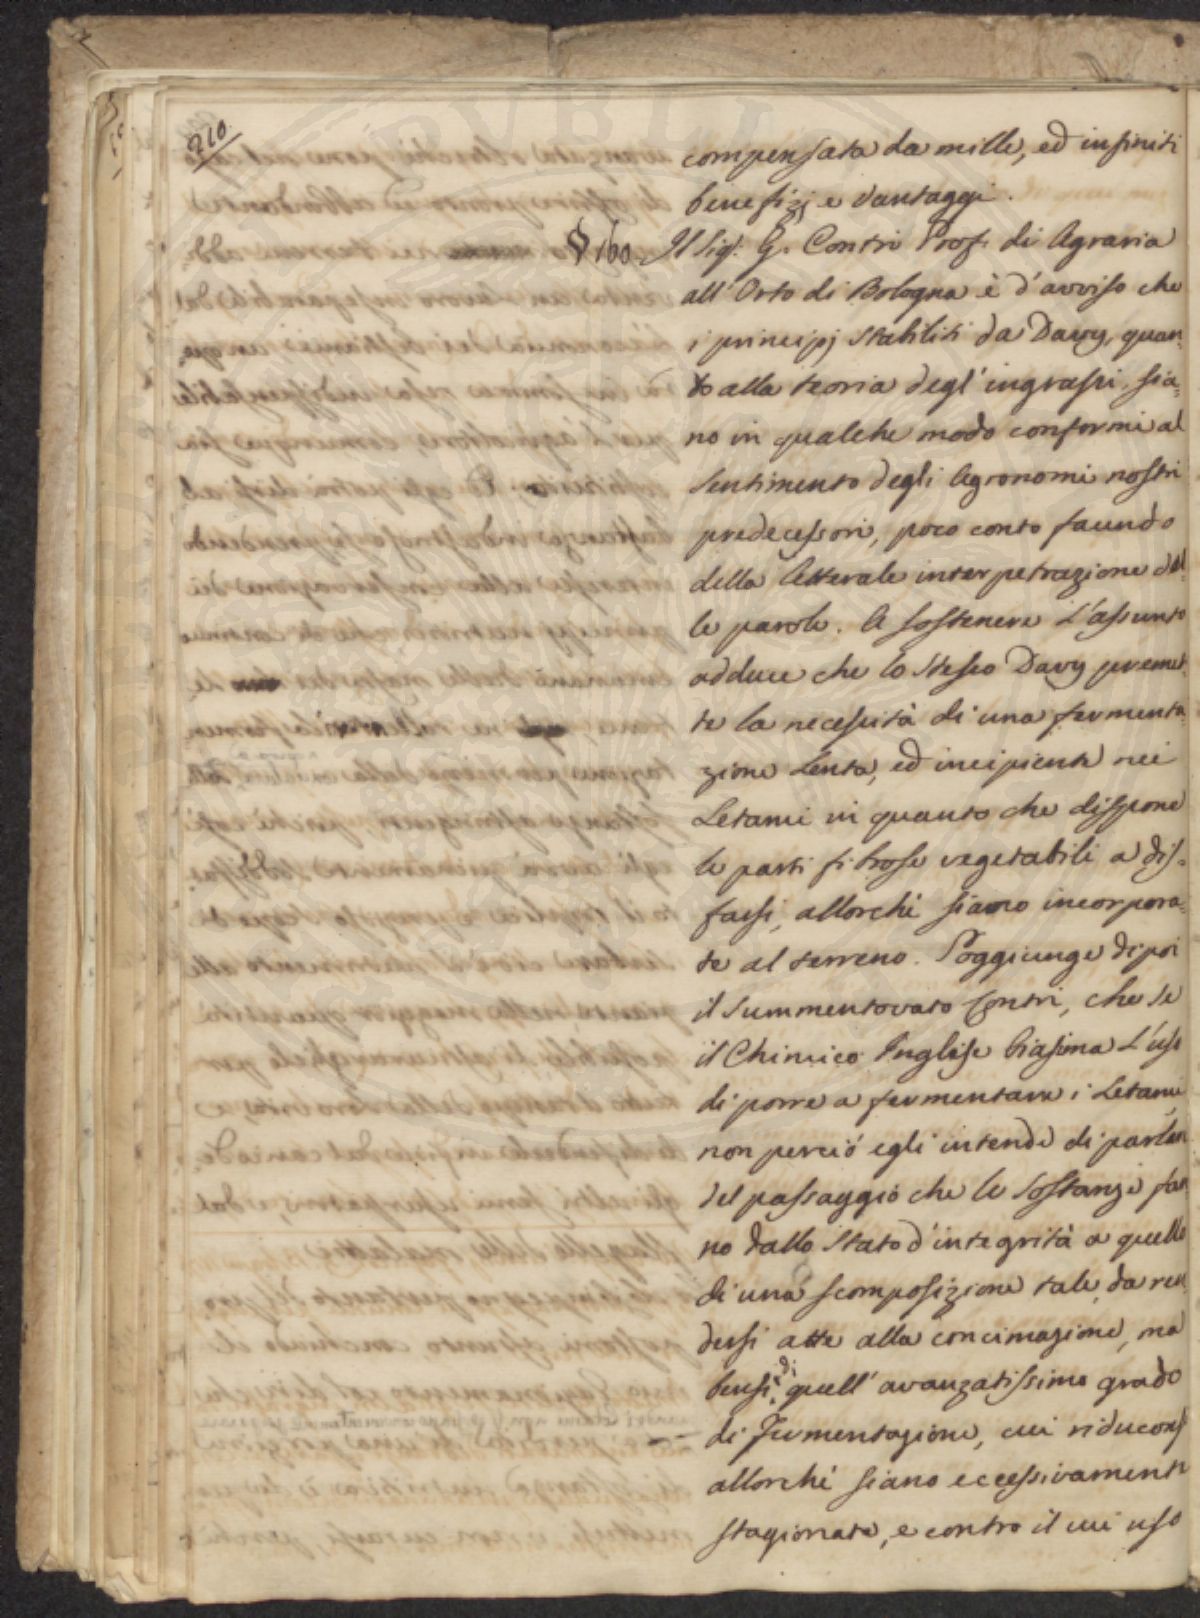 210
compensata da mille, ed infiniti
benefizj e vantaggi.
§ 160 Il Sig.r G. Contri Prof. di Agraria
all'Orto di Bologna è d'avviso che
i principj stabiliti da Davy, quan-
to alla teoria degl'ingrassi, sia-
no in qualche modo conformi al
sentimento degli Agronomi nostri
predecessori, poco conto facendo
della letterale interpetrazione del-
le parole. A sostenere l'assunto
adduce che lo stesso Davy premet-
te la necessità di una fermenta-
zione lenta, ed incipiente nei
Letami in quanto che dispone
le parti fibrose vegetabili a dis-
farsi, allorchè siano incorpora-
te al terreno. Soggiunge dipoi
il summentovato Contri, che se
il Chimico Inglese biasima l'uso
di porre a fermentare i Letami
non perciò egli intende di parlar
del passaggio che le sostanze fan-
no dallo stato d'integrità a quello
di una scomposizione tale, da ren-
dersi atte alla concimazione, ma
bensì di quell'avanzatissimo grado
di fermentazione, cui riduconsi
allorchè siano eccessivamente
stagionate, e contro il cui uso